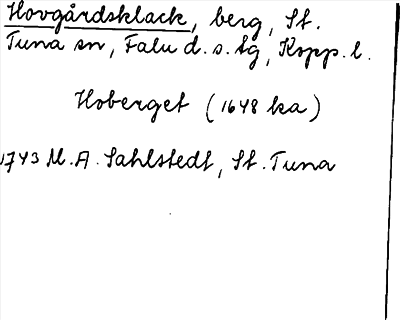 Hovgårdsklack, berg, St.
Tuna sn, Falu d.s. tg, Kopp. l.
Hoberget (1648 ka)
1743 M.A. Sahlstedt, St. Tuna